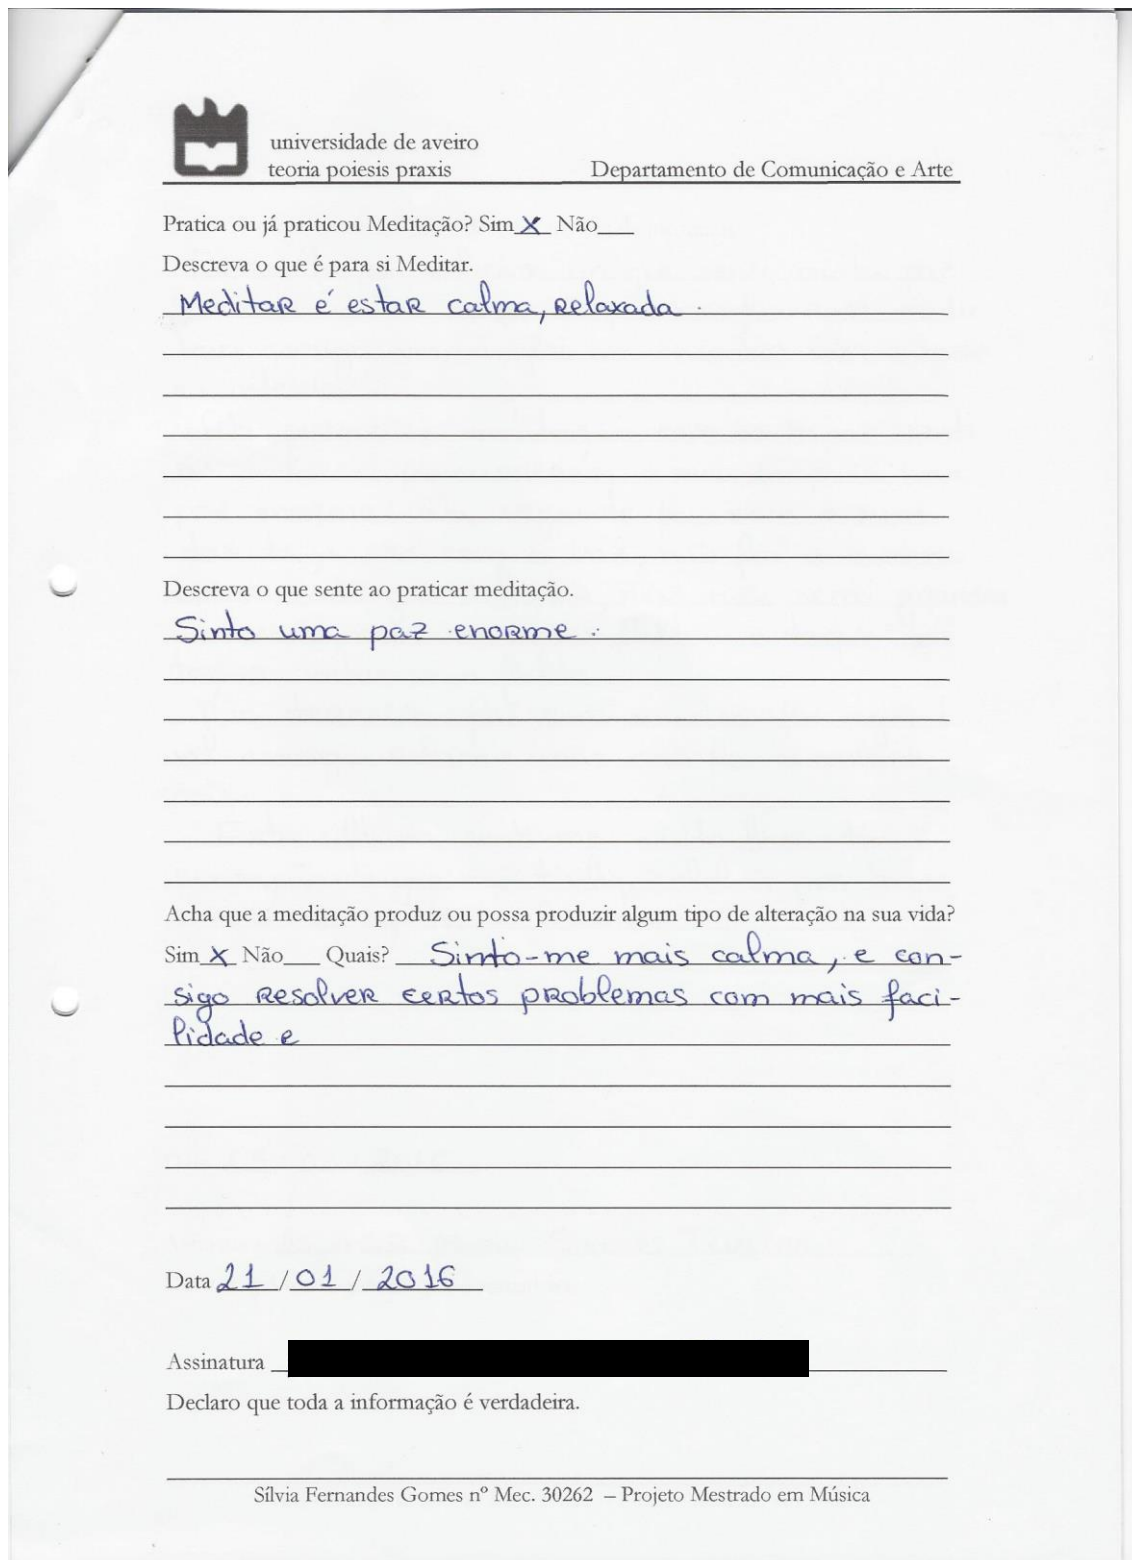 universidade de aveiro
teoria poiesis praxis Departamento de Comunicação e Arte
Pratica ou já praticou Meditação? Sim X Não___
Descreva o que é para si Meditar.
Meditar é estar calma, relaxada.
Descreva o que sente ao praticar meditação.
Sinto uma paz enorme.
Acha que a meditação produz ou possa produzir algum tipo de alteração na sua vida?
Sim X Não___ Quais? Sinto-me mais calma, e con-
sigo resolver certos problemas com mais faci-
lidade e
Data 21 / 01 / 2016
Assinatura
Declaro que toda a informação é verdadeira.
Sílvia Fernandes Gomes nº Mec. 30262 – Projeto Mestrado em Música